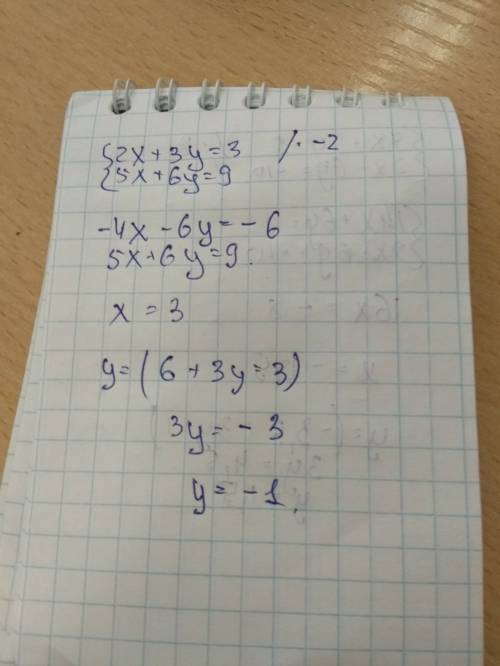 {2x+3y=3 /· -2
{5x+6y=9
-4x-6y=-6
5x+6y=9.
x = 3
y=(6+3y=3)
3y=-3
y=-1.